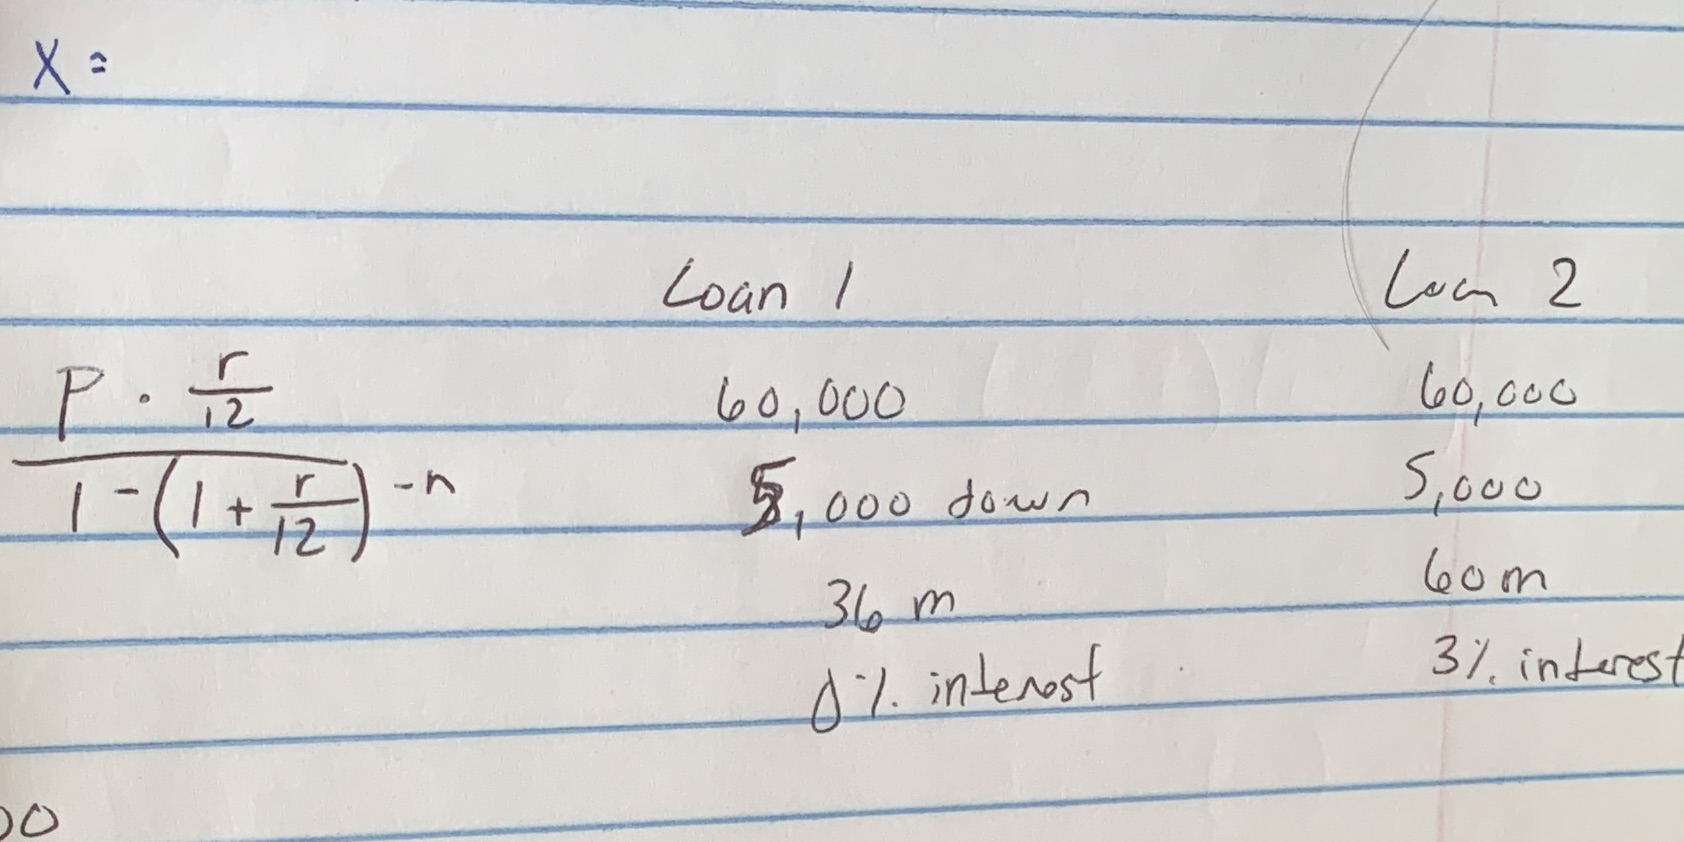 X =
Loan 1 Loan 2
P · r/12 60,000 60,000
1 - (1 + r/12)^-n 5,000 down 5,000
36 m 60 m
0% interest 3% interest
00